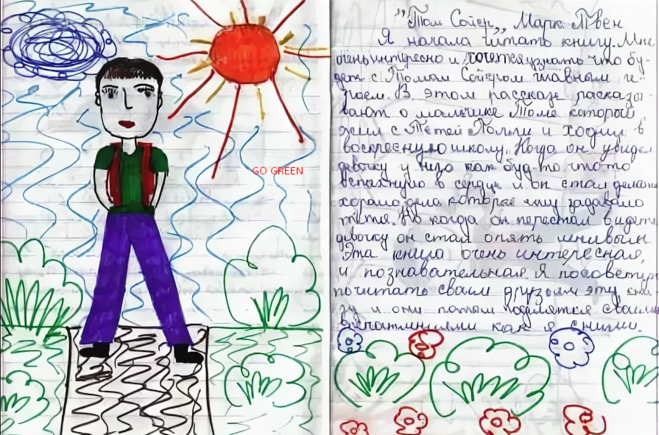 GO GREEN
"Том Сойер" Марк Твен
Я начала читать книгу. Мне
очень интересно и хочется узнать что бу-
дет с Томом Сойером главным ге-
роем. В этом рассказе расказ
вают о мальчике Томе который
жил с Тётей Полли и ходил в
воскресную школу. Когда он увидел
девочку у него как буд-то что-то
в сердце и он стал делать
хорошо дела которые ему задавала
тётя. Но когда он перестал видеть
девочку он стал опять ленивым.
Эта книга очень интересная,
и познавательная. Я посоветую
почитать своим друзьям эту кни-
гу и они потом поделятся своими
впечатлениями как я с ними.